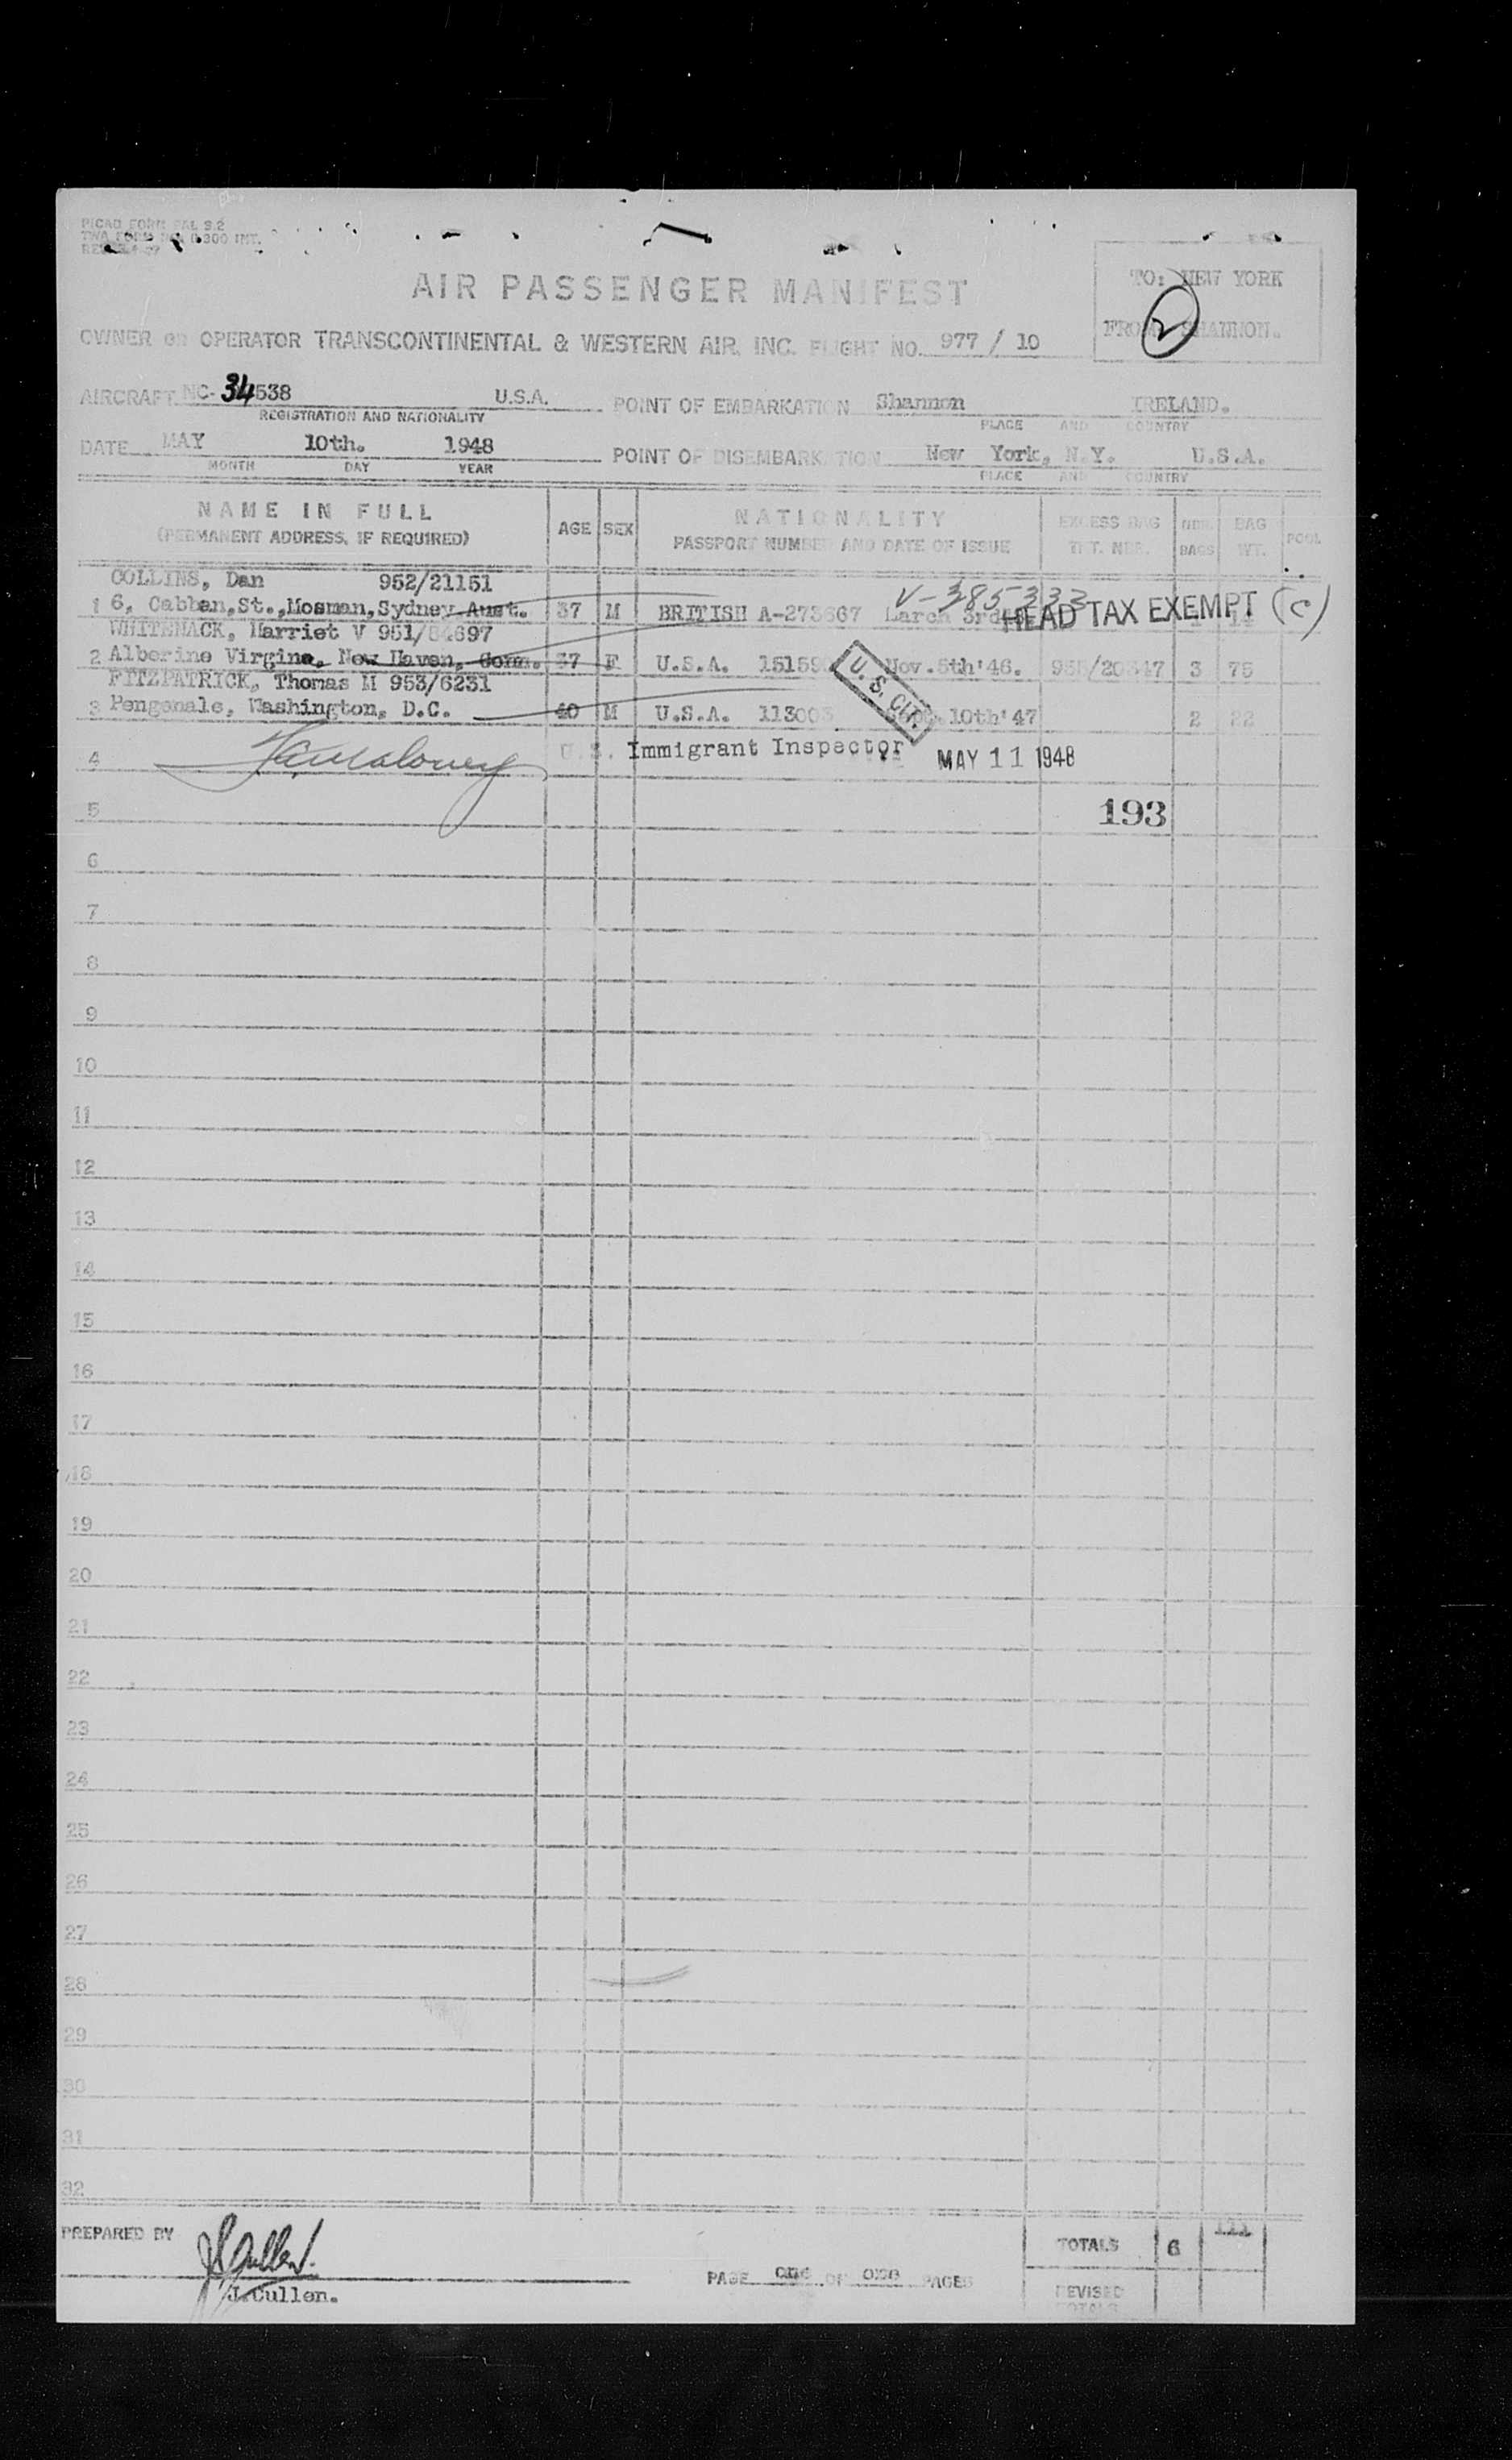 PICAO FORM BAL 9.2
TWA FORM 0300 INT.
AIR PASSENGER MANIFEST
TO: NEW YORK
FROM: SHANNON.
2
OWNER OR OPERATOR TRANSCONTINENTAL & WESTERN AIR, INC. FLIGHT NO. 977 / 10
AIRCRAFT NC-34538 U.S.A. POINT OF EMBARKATION Shannon IRELAND.
REGISTRATION AND NATIONALITY PLACE AND COUNTRY
DATE MAY 10th. 1948 POINT OF DISEMBARKATION New York, N.Y. U.S.A.
MONTH DAY YEAR PLACE AND COUNTRY
NAME IN FULL AGE SEX NATIONALITY EXCESS BAG NBR. BAG POOL
(PERMANENT ADDRESS, IF REQUIRED) PASSPORT NUMBER AND DATE OF ISSUE TKT. NBR. BAGS WT.
COLLINS, Dan 952/21151 V-385333
1 6, Cabban,St.,Mosman,Sydney Aust. 37 M BRITISH A-273667 3rd HEAD TAX EXEMPT (c)
WHITENACK, Harriet V 951/
2 Alberine Virgina, New Haven, Conn. 37 F U.S.A. Nov.5th'46. 3 75
U. S. CIT.
FITZPATRICK, Thomas M 953/6231
3 Pengonale, Washington, D.C. 40 M U.S.A. 113003 10th'47 2 22
4 U.S. Immigrant Inspector MAY 11 1948
5 193
6
7
8
9
10
11
12
13
14
15
16
17
18
19
20
21
22
23
24
25
26
27
28
29
30
31
32
PREPARED BY J Cullen.
TOTALS 6 111
PAGE one OF one PAGES
J.Cullen.
REVISED
TOTALS